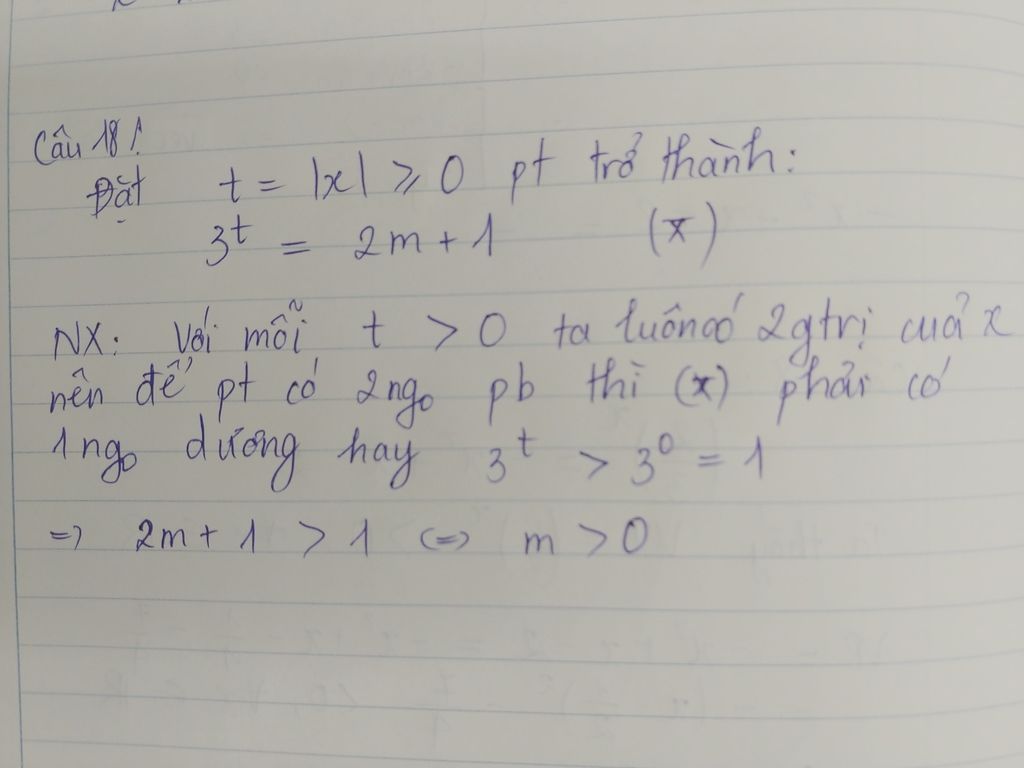 Câu 18!
Đặt t = |x| ⩾ 0 pt trở thành:
3^t = 2m + 1 (*)
NX: Với mỗi t > 0 ta luôn có 2 gtrị của x
nên để pt có 2 ngo pb thì (*) phải có
1 ngo dương hay 3^t > 3^0 = 1
=> 2m + 1 > 1 <=> m > 0